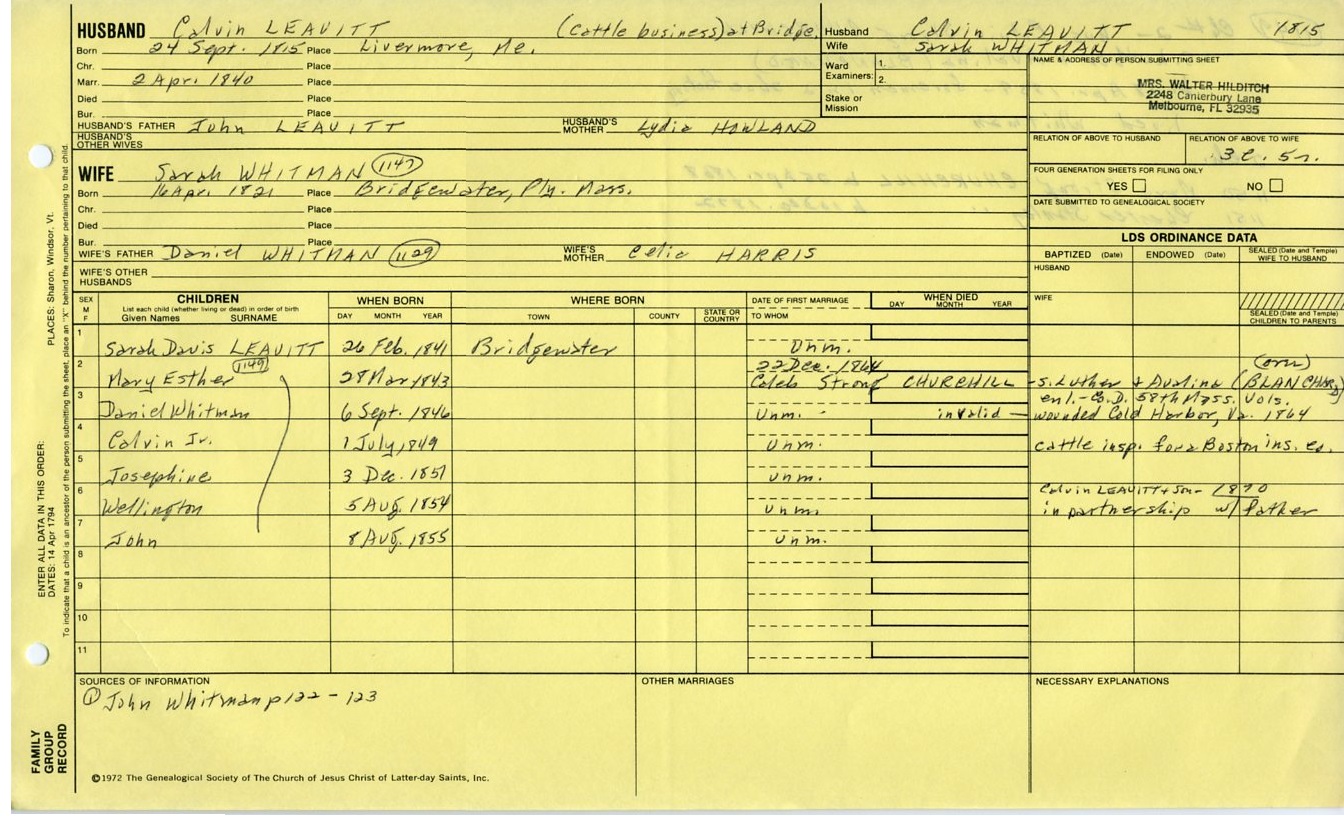 HUSBAND Calvin LEAVITT (Cattle business) at Bridge.
Born 24 Sept. 1815 Place Livermore, Me.
Chr. Place
Marr. 2 Apr. 1840 Place
Died Place
Bur. Place
HUSBAND'S FATHER John LEAVITT HUSBAND'S MOTHER Lydia HOWLAND
HUSBAND'S OTHER WIVES
WIFE Sarah WHITMAN 1147
Born 16 Apr. 1821 Place Bridgewater, Ply. Mass.
Chr. Place
Died Place
Bur. Place
WIFE'S FATHER Daniel WHITMAN 1129 WIFE'S MOTHER Celia HARRIS
WIFE'S OTHER HUSBANDS
Husband Calvin LEAVITT 1815
Wife Sarah WHITMAN
Ward Examiners: 1.
2.
Stake or Mission
NAME & ADDRESS OF PERSON SUBMITTING SHEET
MRS. WALTER HILDITCH
2248 Canterbury Lane
Melbourne, FL 32935
RELATION OF ABOVE TO HUSBAND RELATION OF ABOVE TO WIFE
3c. 5r.
FOUR GENERATION SHEETS FOR FILING ONLY
YES NO
DATE SUBMITTED TO GENEALOGICAL SOCIETY
LDS ORDINANCE DATA
BAPTIZED (Date) ENDOWED (Date) SEALED (Date and Temple) WIFE TO HUSBAND
HUSBAND
WIFE
SEALED (Date and Temple) CHILDREN TO PARENTS
SEX M F
CHILDREN
List each child (whether living or dead) in order of birth
Given Names SURNAME
WHEN BORN
DAY MONTH YEAR
WHERE BORN
TOWN COUNTY STATE OR COUNTRY
DATE OF FIRST MARRIAGE
TO WHOM
WHEN DIED
DAY MONTH YEAR
1 Sarah Davis LEAVITT 26 Feb. 1841 Bridgewater Unm.
2 Mary Esther 1149 28 Mar 1843 22 Dec. 1864 Caleb Strong CHURCHILL - s. Luther + Avalina (BLANCHARD) (over)
3 Daniel Whitman 6 Sept. 1846 Unm. - invalid - enl.-Co. D. 58th Mass. Vols. wounded Cold Harbor, Va. 1864
4 Calvin Jr. 1 July, 1849 Unm. cattle insp. for a Boston ins. co.
5 Josephine 3 Dec. 1851 Unm.
6 Wellington 5 Aug. 1854 Unm. Calvin LEAVITT + Son - 1890 in partnership w/ father
7 John 8 Aug. 1855 Unm.
8
9
10
11
SOURCES OF INFORMATION
① John Whitman p 122 - 123
OTHER MARRIAGES
NECESSARY EXPLANATIONS
©1972 The Genealogical Society of The Church of Jesus Christ of Latter-day Saints, Inc.
FAMILY GROUP RECORD
ENTER ALL DATA IN THIS ORDER:
DATES: 14 Apr 1794
PLACES: Sharon, Windsor, Vt.
To indicate that a child is an ancestor of the person submitting the sheet, place an "X" behind the number pertaining to that child.